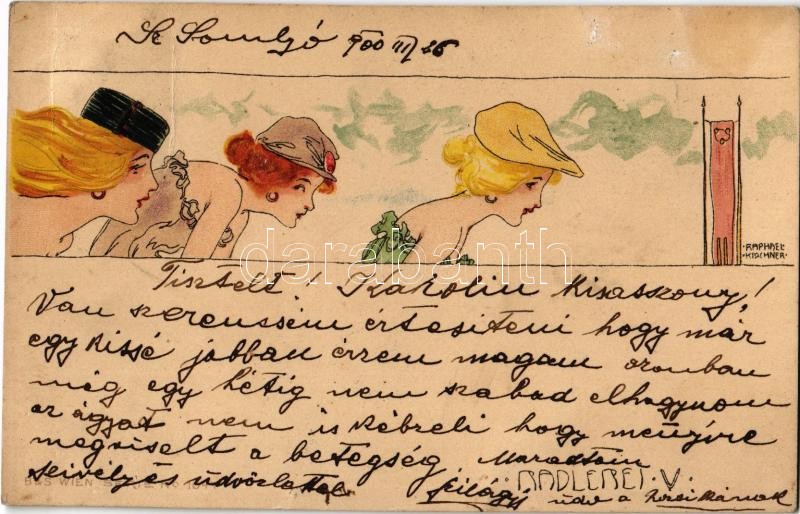 900 III/26
RAPHAEL
KIRCHNER
darabanth
Tisztelt! Karolin Kisasszony!
Van szerencsém értesiteni hogy már
egy kissé jobban érzem magam azonban
még egy hétig nem szabad elhagynom
az ágyat nem is képzeli hogy mennyire
megviselt a betegség Maradtam
RADLEREI·V·
szivélyes üdvözlettel Szilágyi üdv a
B&S WIEN